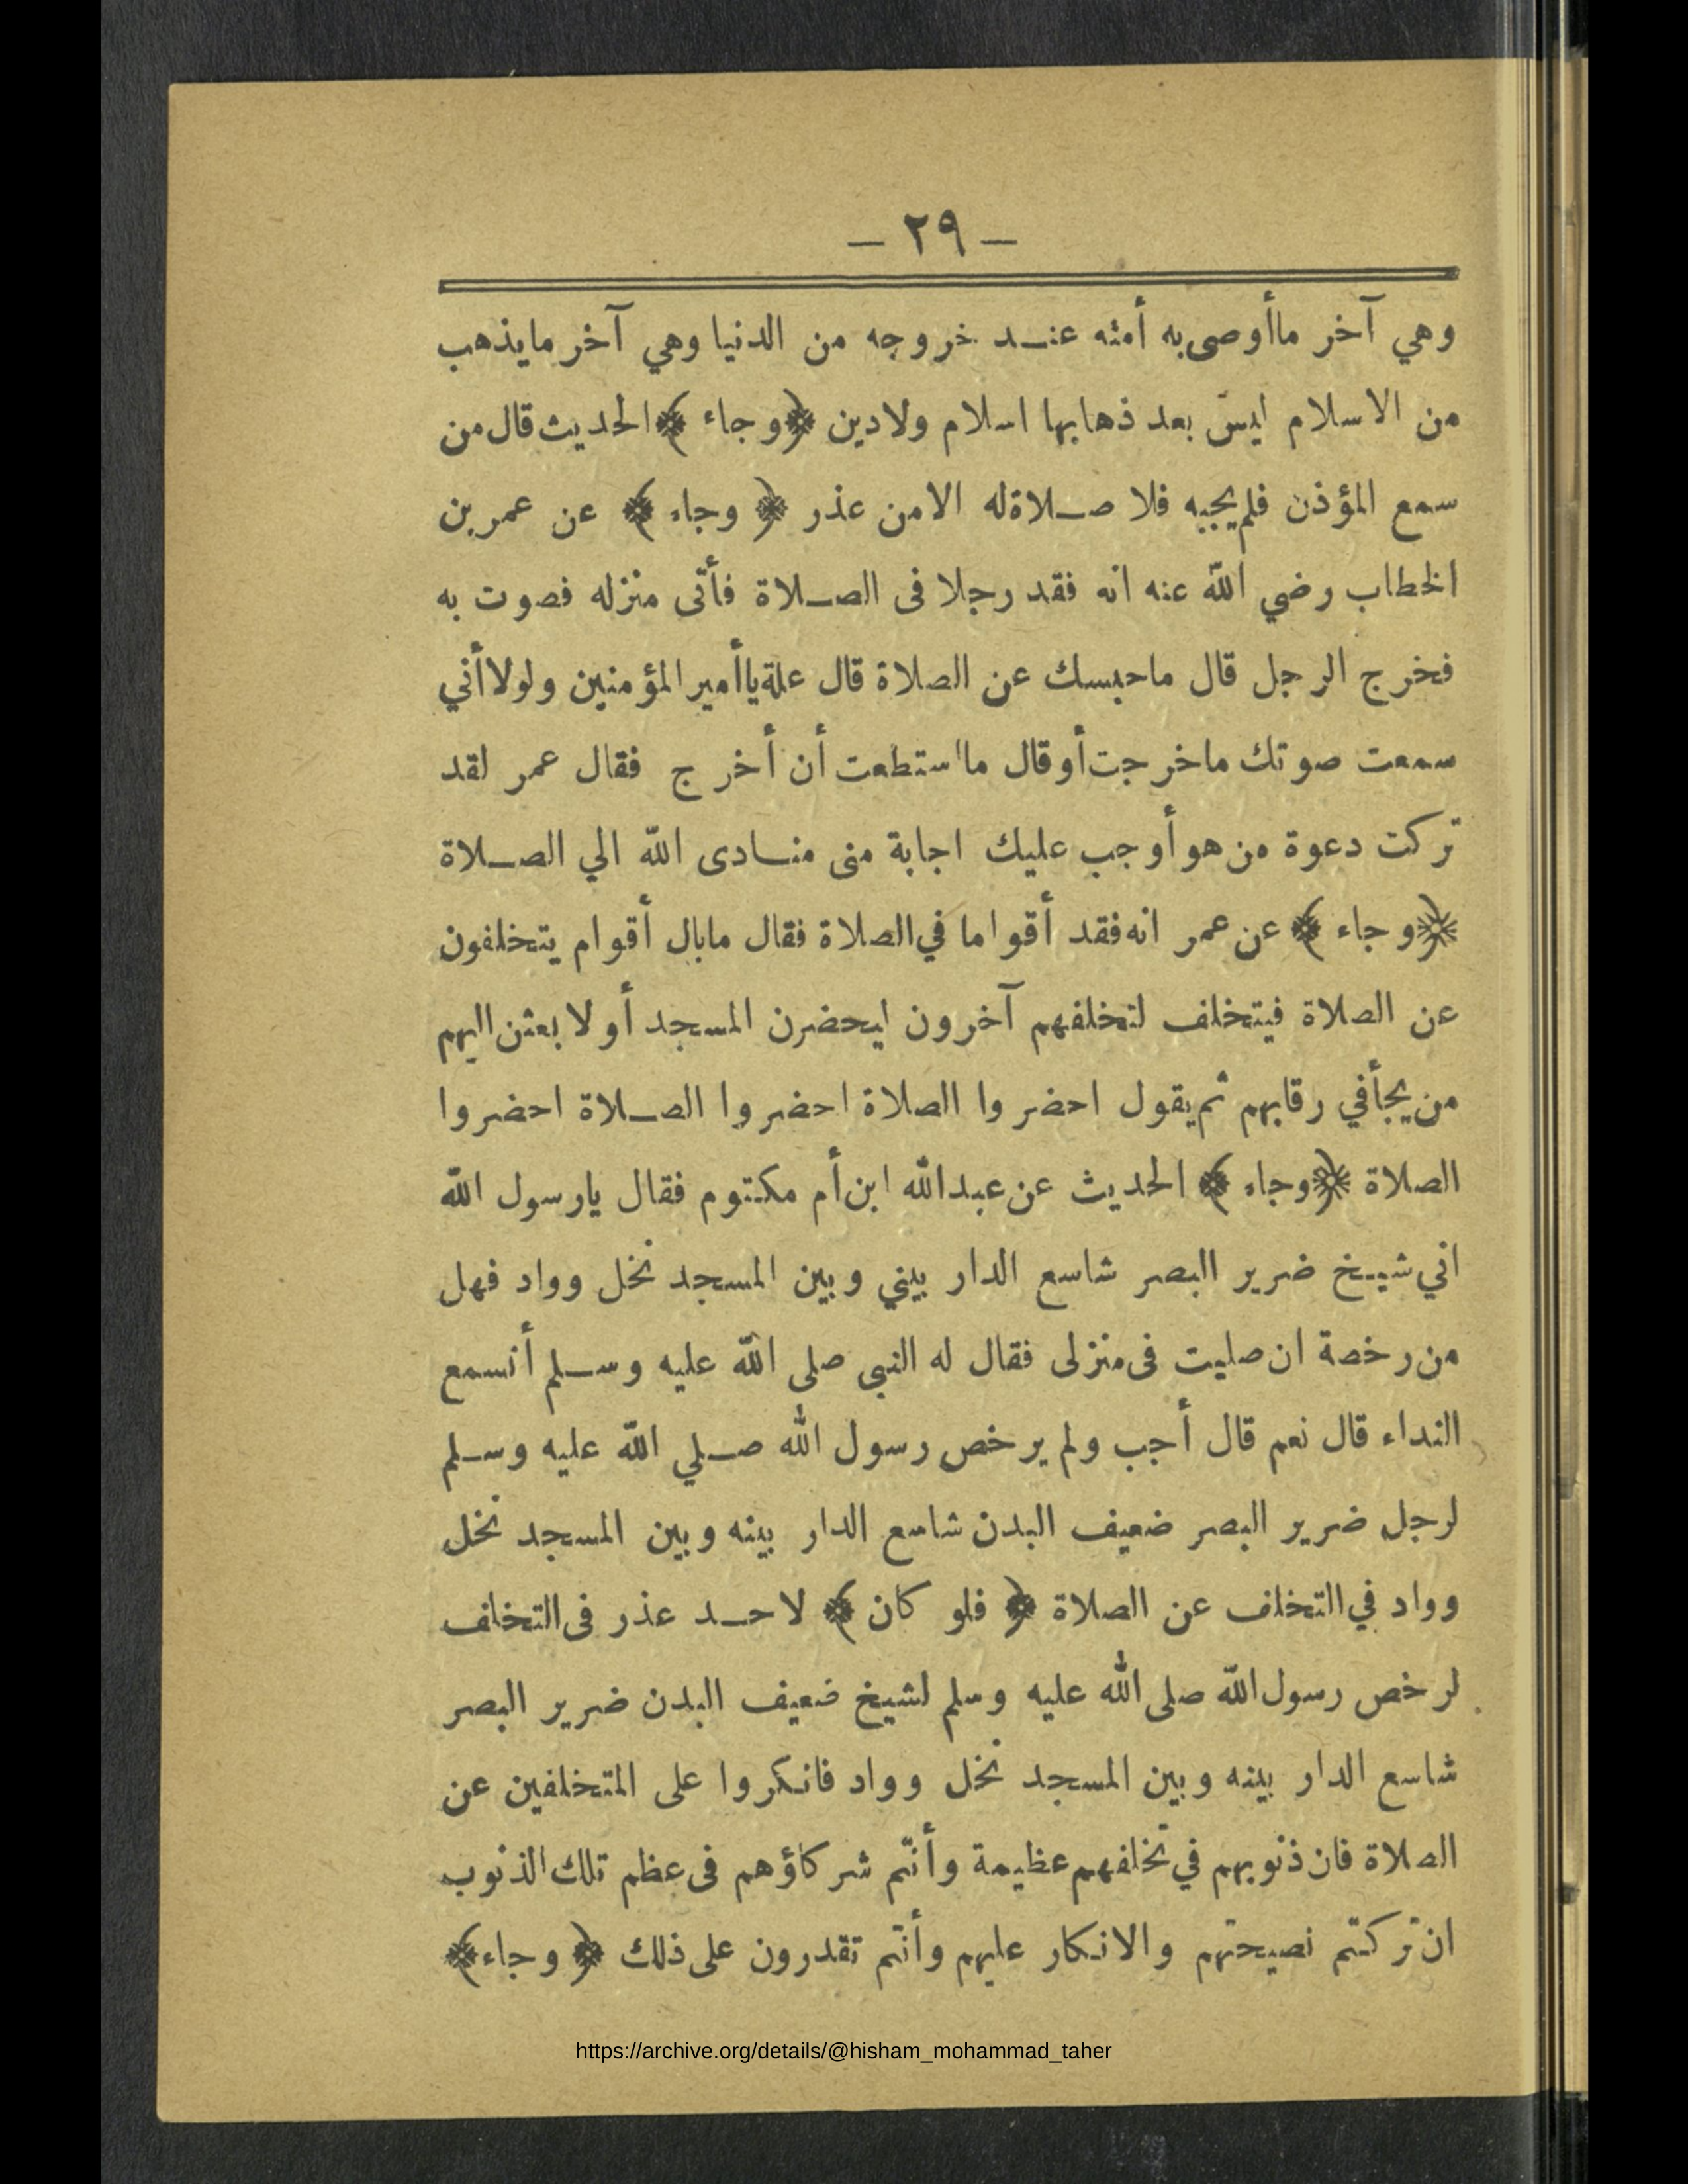 — ٢٩ —
وهي آخر ماأوصى به أمته عند خروجه من الدنيا وهي آخر مايذهب
من الاسلام ليس بعد ذهابها اسلام ولادين ﴿وجاء﴾ الحديث قال من
سمع المؤذن فلم يجبه فلا صلاة له الا من عذر ﴿ وجاء ﴾ عن عمر بن
الخطاب رضي الله عنه انه فقد رجلا فى الصلاة فأتى منزله فصوت به
فخرج الرجل قال ماحبسك عن الصلاة قال علة ياأمير المؤمنين ولولا أني
سمعت صوتك ماخرجت أوقال مااستطعت أن أخرج فقال عمر لقد
تركت دعوة من هو أوجب عليك اجابة منى منادى الله الي الصلاة
﴿وجاء ﴾ عن عمر انه فقد أقواما في الصلاة فقال مابال أقوام يتخلفون
عن الصلاة فيتخلف لتخلفهم آخرون ليحضرن المسجد أو لابعثن اليهم
من يجأ في رقابهم ثم يقول احضروا الصلاة احضروا الصلاة احضروا
الصلاة ﴿وجاء ﴾ الحديث عن عبدالله ابن أم مكتوم فقال يارسول الله
اني شيخ ضرير البصر شاسع الدار بيني وبين المسجد نخل وواد فهل
من رخصة ان صليت فى منزلى فقال له النبى صلى الله عليه وسلم أتسمع
النداء قال نعم قال أجب ولم يرخص رسول الله صلي الله عليه وسلم
لرجل ضرير البصر ضعيف البدن شاسع الدار بينه وبين المسجد نخل
وواد في التخلف عن الصلاة ﴿ فلو كان ﴾ لاحد عذر فى التخلف
لرخص رسول الله صلى الله عليه وسلم لشيخ ضعيف البدن ضرير البصر
شاسع الدار بينه وبين المسجد نخل وواد فانكروا على المتخلفين عن
الصلاة فان ذنوبهم في تخلفهم عظيمة وأنتم شركاؤهم فى عظم تلك الذنوب
ان تركتم نصيحتهم والانكار عليهم وأنتم تقدرون على ذلك ﴿ وجاء ﴾
https://archive.org/details/@hisham_mohammad_taher